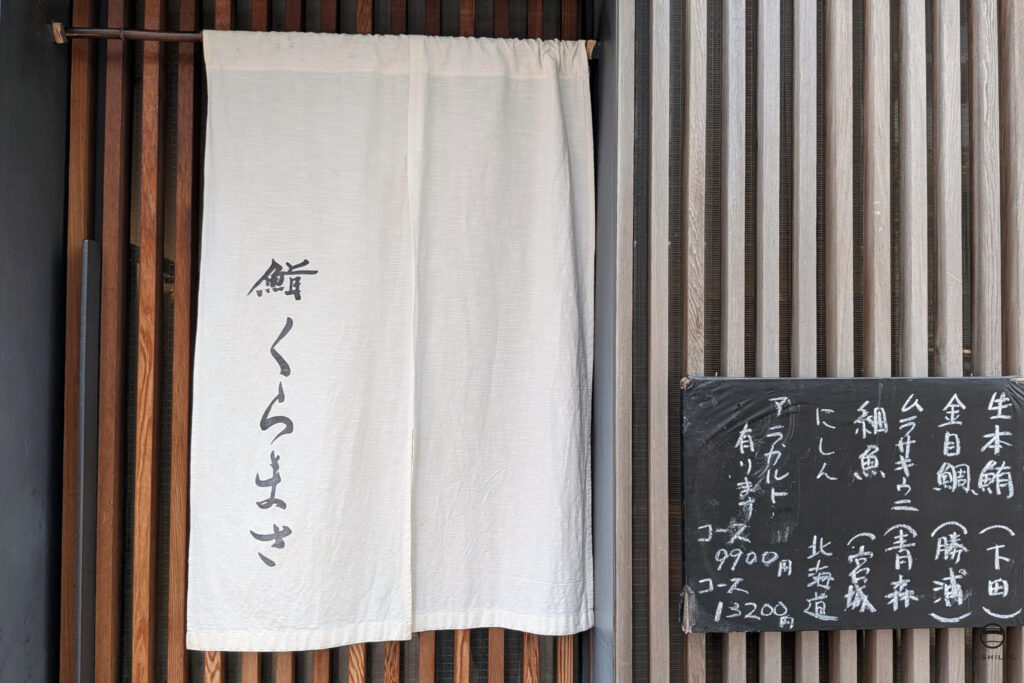 鮨
くらまさ
生本鮪(下田)
金目鯛(勝浦)
ムラサキウニ(青森)
細魚(宮城)
にしん 北海道
アラカルト
有ります
コース
9900円
コース
13200円